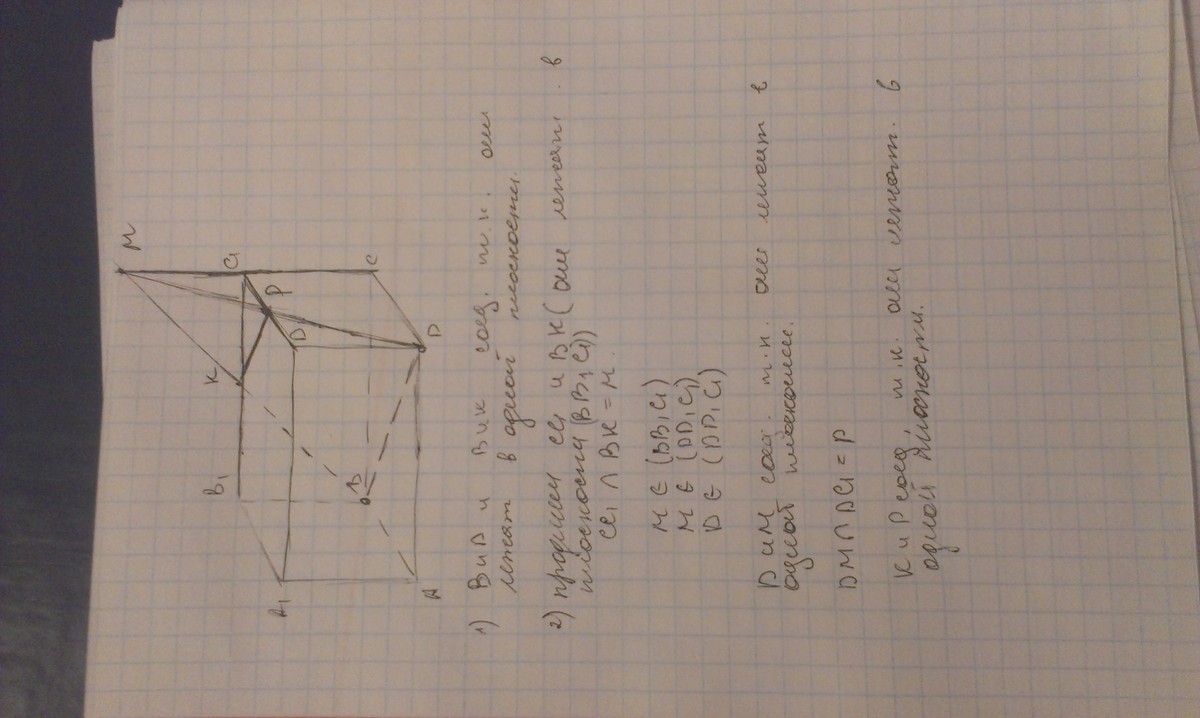 M
K
C1
B1
P
D1
A1
B
C
D
A
1) В и D и В и К соед. т.к. они
лежат в одной плоскости.
2) продлим CC1 и ВК (они лежат. в
плоскости (BB1C1))
CC1 ∩ BK = M.
M ∈ (BB1C1)
M ∈ (DD1C1)
D ∈ (DD1C1)
D и M соед. т.к. они лежат в
одной плоскости.
DM ∩ DC1 = P
К и Р соед т.к. они лежат. в
одной плоскости.